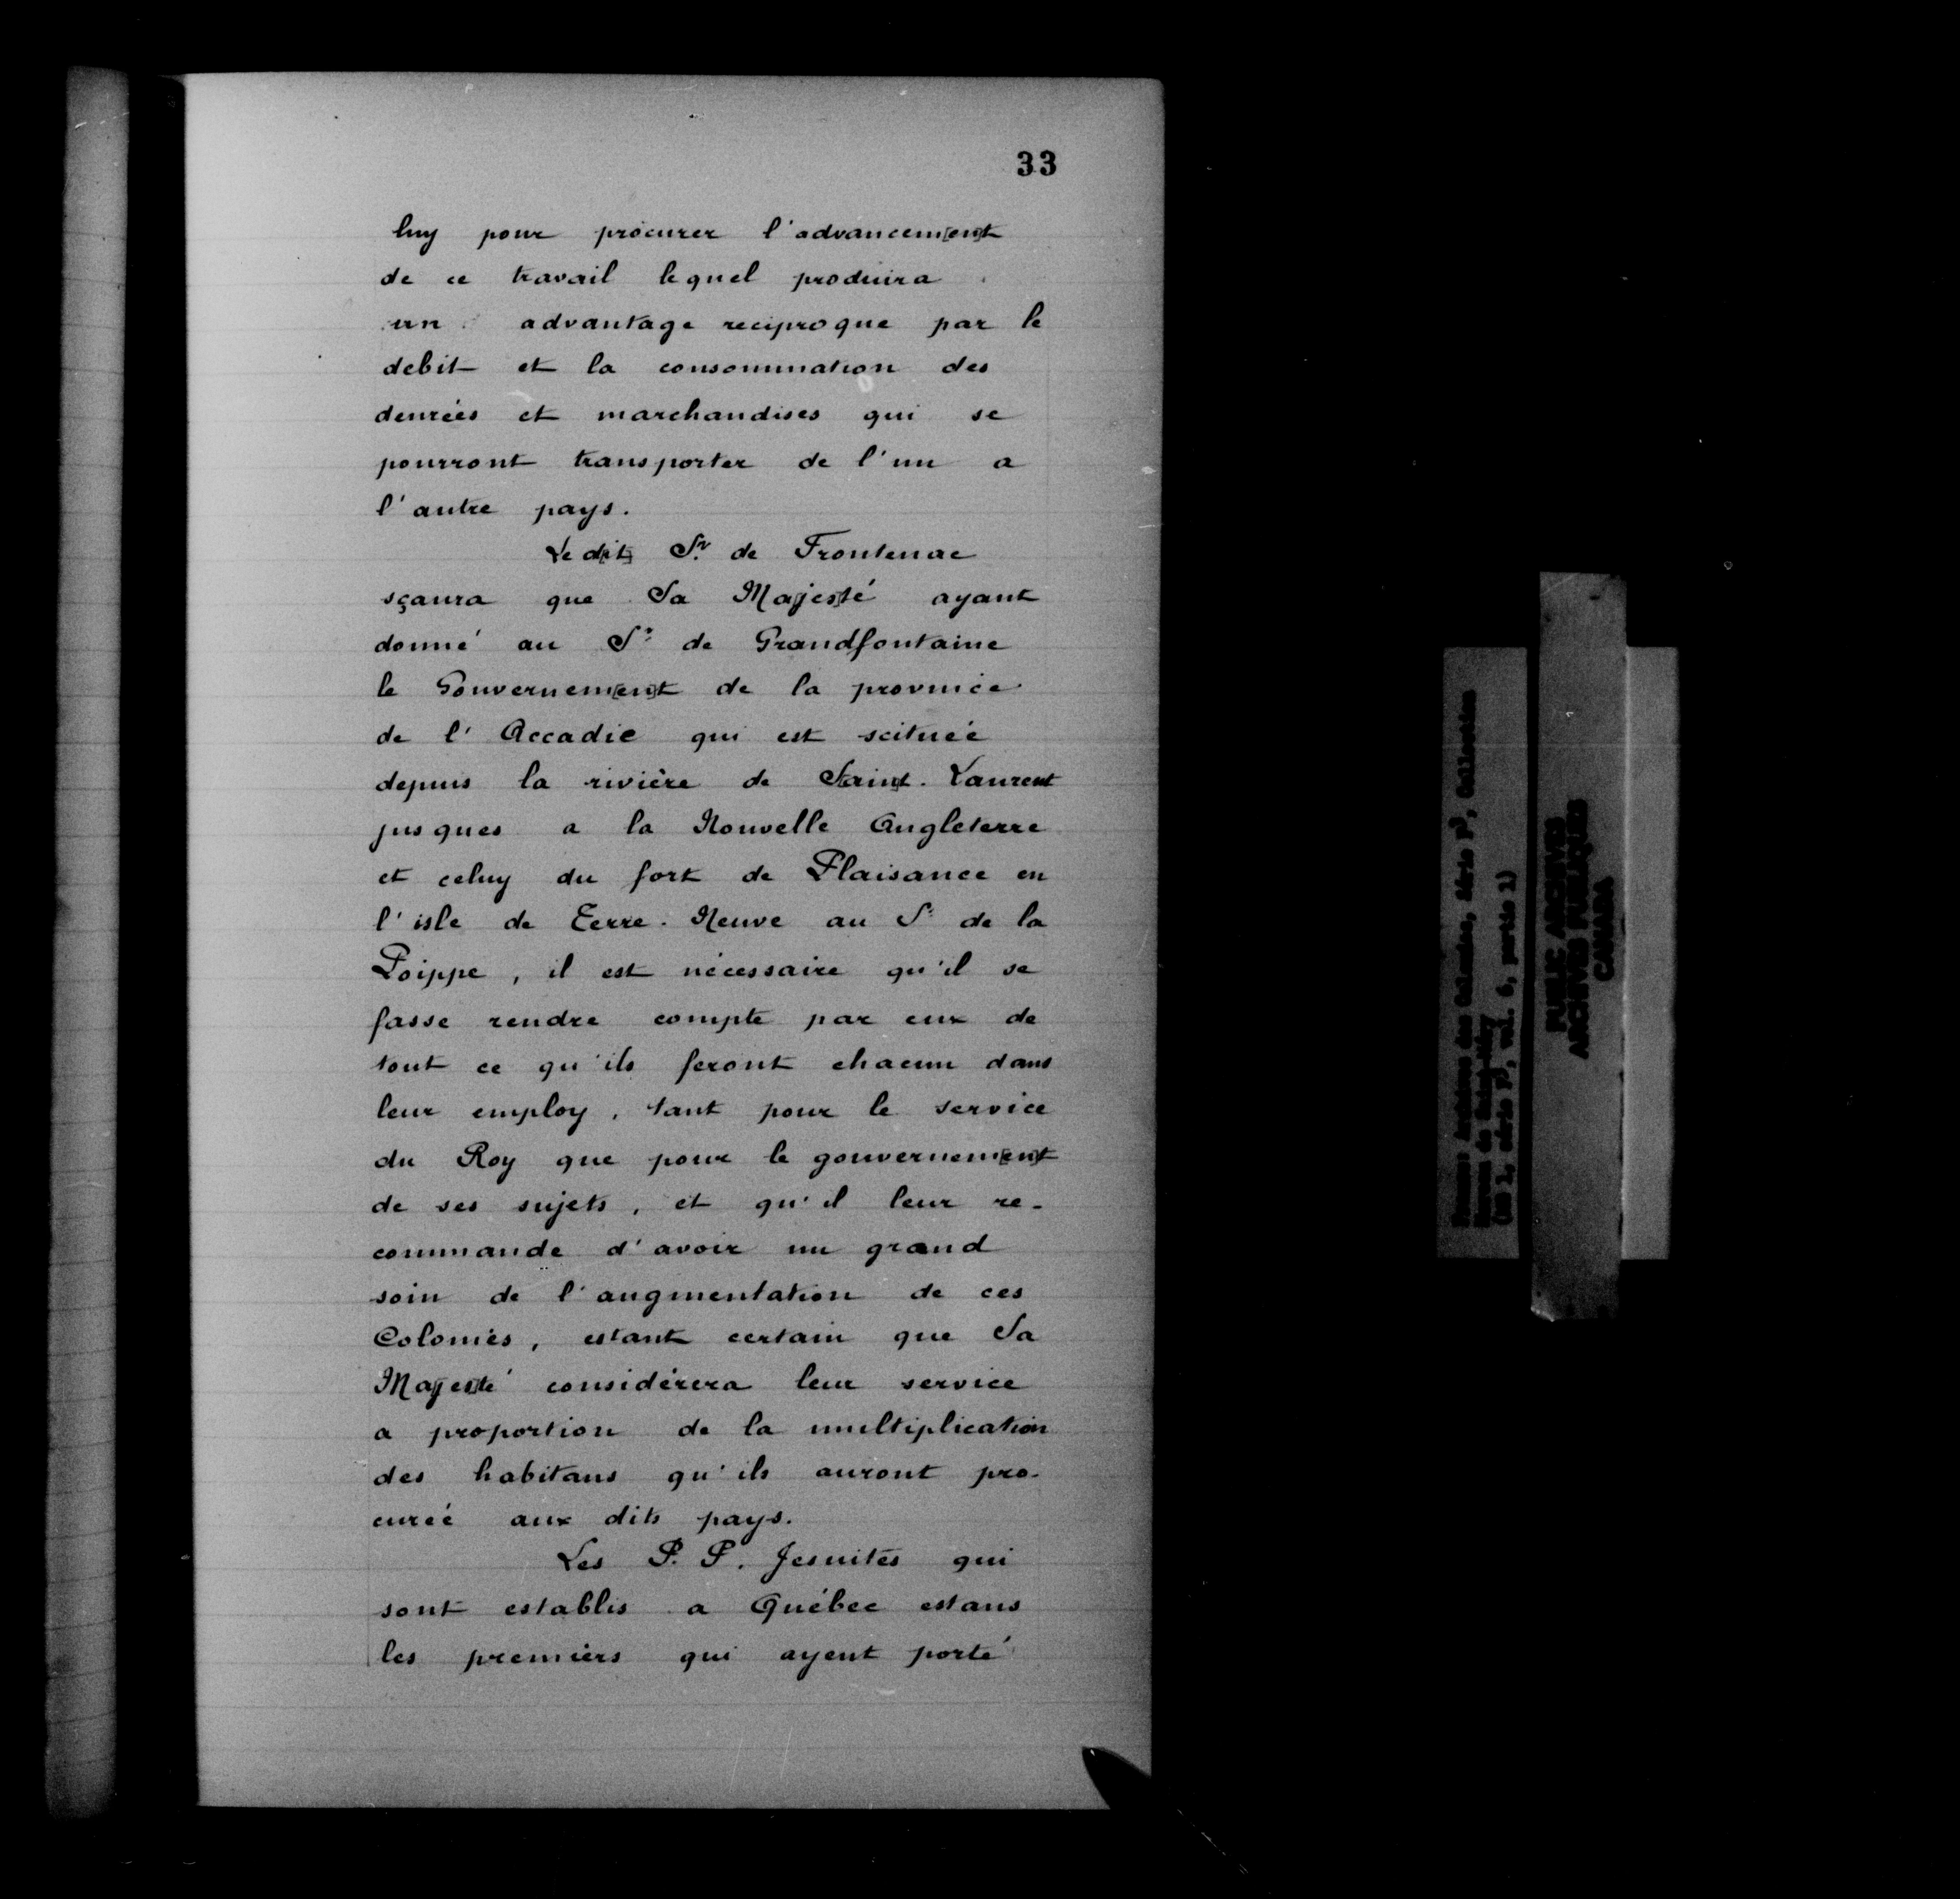 33
luy pour procurer l'advancem[en]t
de ce travail lequel produira
un advantage reciproque par le
debit et la consommation des
denrées et marchandises qui se
pourront transporter de l'un a
l'autre pays.
Le d[it] Sr. de Frontenac
sçaura que Sa Ma[jes]té ayant
donné au Sr. de Grandfontaine
le Gouvernem[en]t de la province
de l'Accadie qui est scituée
depuis la rivière de S[ain]t. Laurent
jusques a la Nouvelle Angleterre
et celuy du fort de Plaisance en
l'isle de Terre-Neuve au Sr. de la
Poippe, il est nécessaire qu'il se
fasse rendre compte par eux de
tout ce qu'ils feront chacun dans
leur employ, tant pour le service
du Roy que pour le gouvernem[en]t
de ses sujets, et qu'il leur re-
commande d'avoir un grand
soin de l'augmentation de ces
Colonies, estant certain que Sa
Ma[jes]té considérera leur service
a proportion de la multiplication
des habitans qu'ils auront pro-
curée aux dits pays.
Les P. P. Jesuites qui
sont establis a Québec estans
les premiers qui ayent porté
PUBLIC ARCHIVES
ARCHIVES PUBLIQUES
CANADA
France Archives des Colonies, série F3, Collection
Moreau de Saint-Méry
(MG 1, série F3, vol. 6, partie 1)